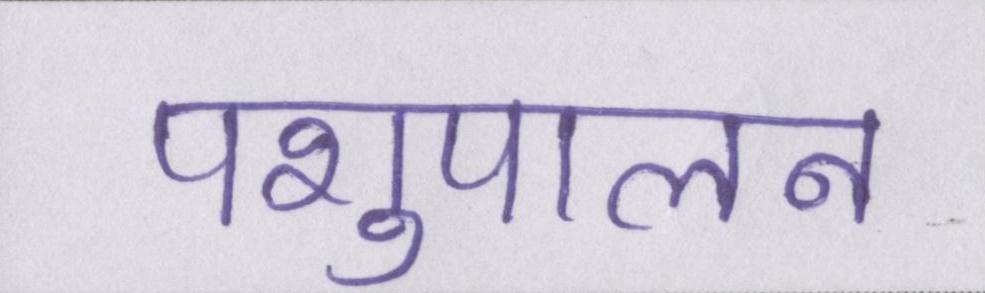 पशुपालन